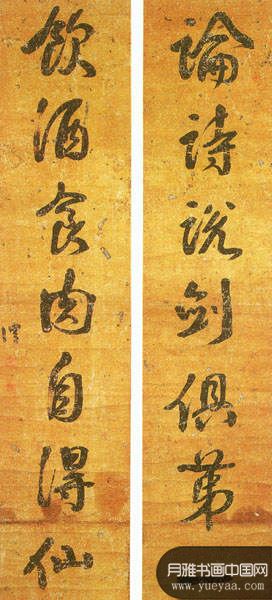 論詩説劍俱第
飲酒食肉自得仙
月雅书画中国网
www.yueyaa.com